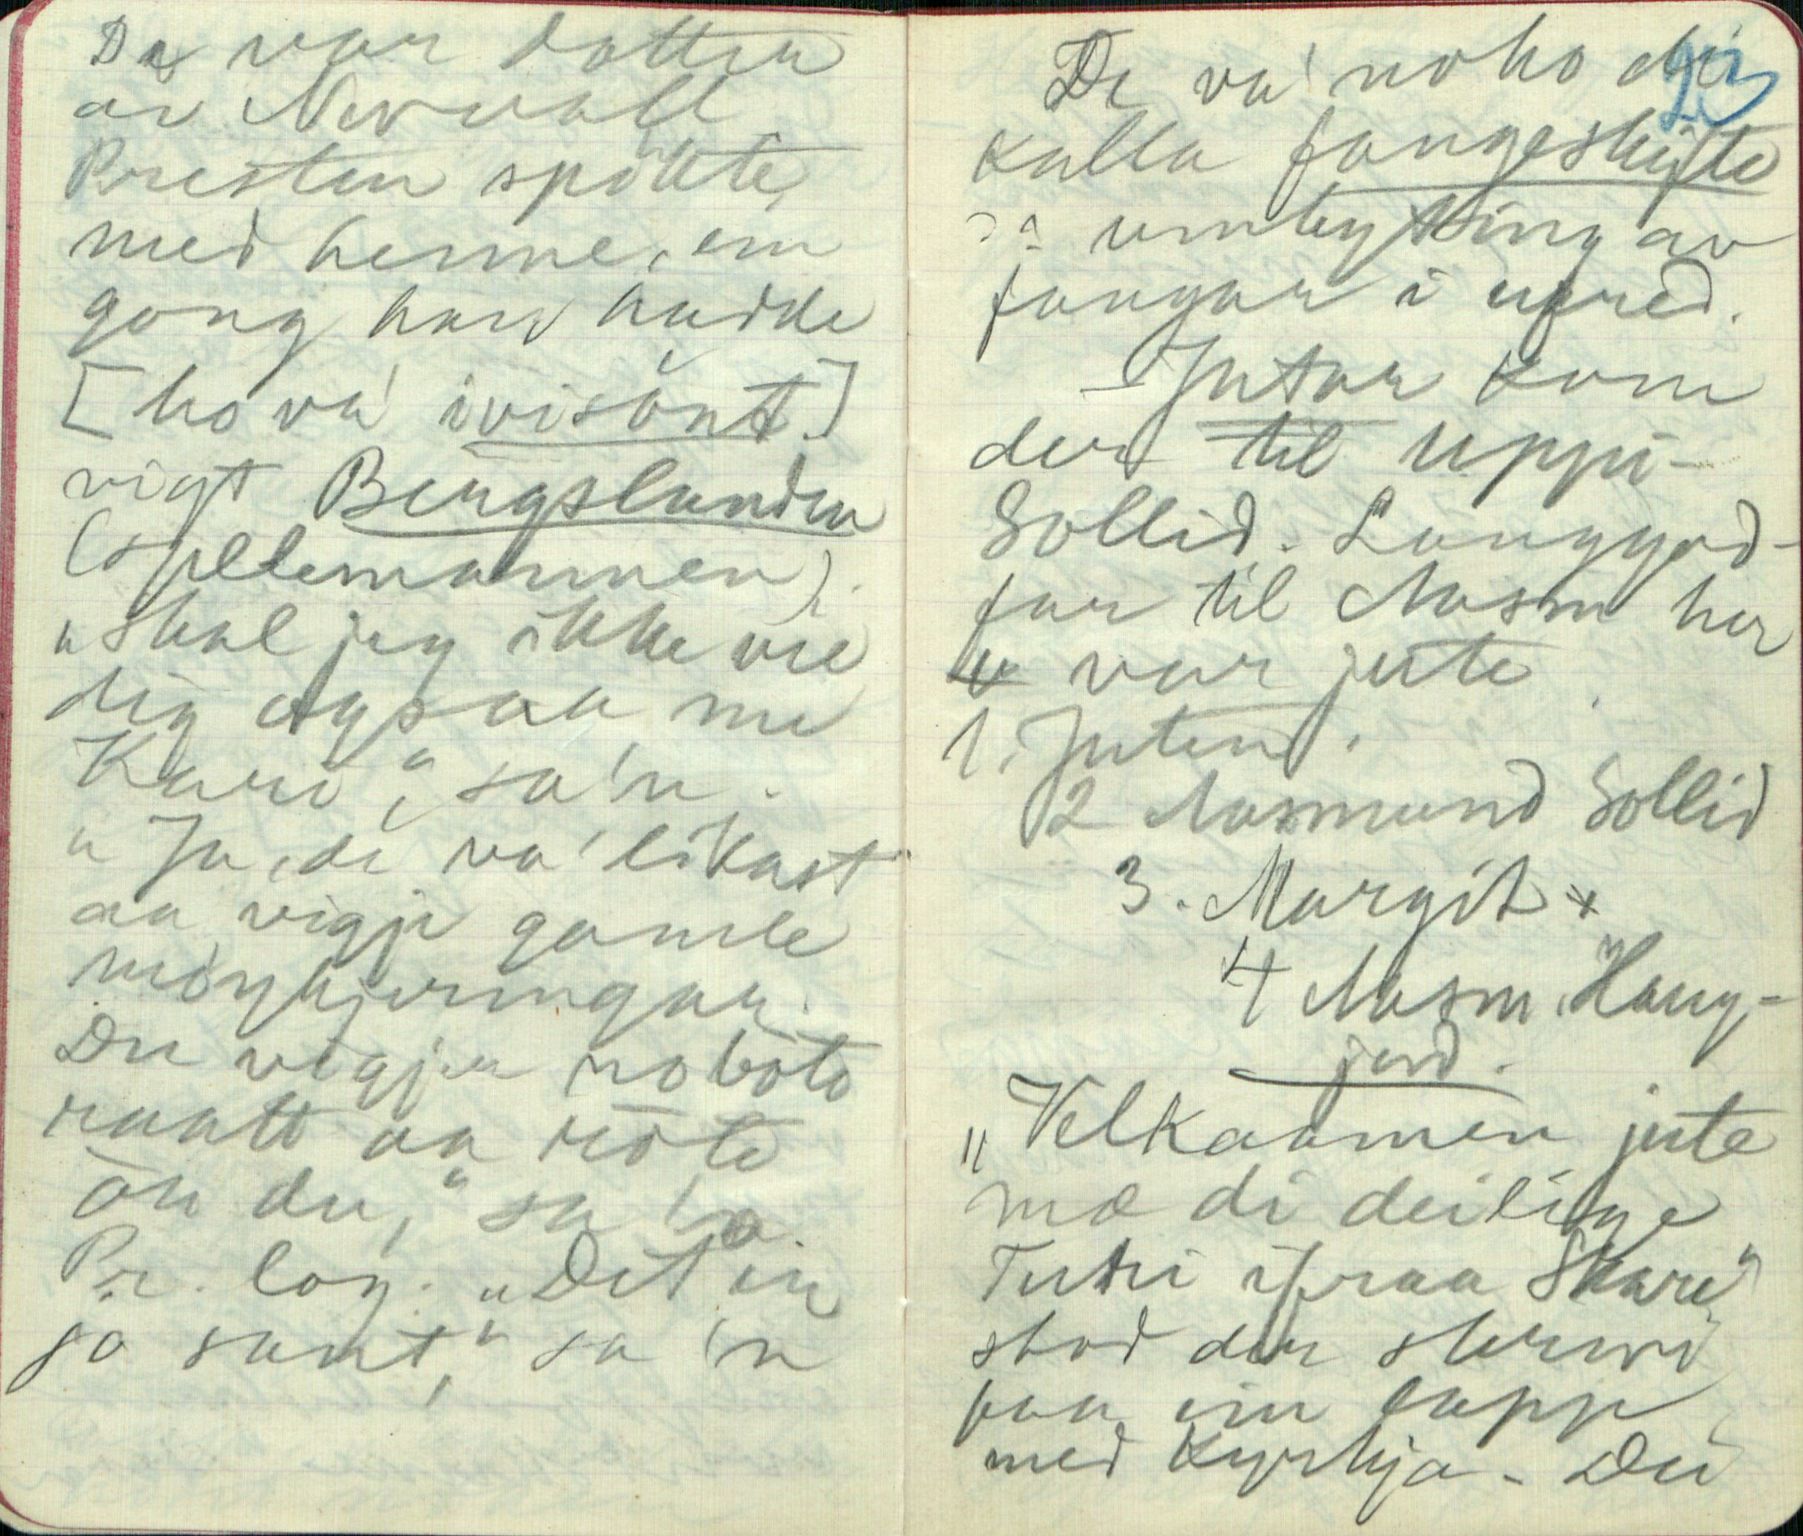 Da var dotter
av Norvall
Presten spökte,
med henne, ein
gong han hadde
[ho va' ivisönt.]
vigt Bergslanden
(spelemannen).
"Skal jeg ikke vie
dig ogsaa me
Kari", sa'n.
"Ja, di va' likast
aa vigje gamle
möykjeringar.
Du vigjer no böte
raatt aa röte
än du," sa 'o.
Pr. log. "Det er
so sant," sa 'n
De va' noko dei
23
kalla fangeskifte
ɔ: umbyting av
fangar i ufred.
– Jutar kom
der til Uppi-
Sollid. Langgod-
far til Aasm her
var jute
1. Juten.
2 Aasmund Sollid
3. Margit
4 Aasm. Haug-
jord.
"Velkaamen jute
mæ di deilige
Tutri ifraa Skare"
stod der skrivi
paa ein lapp
med Kyrkja – Dei